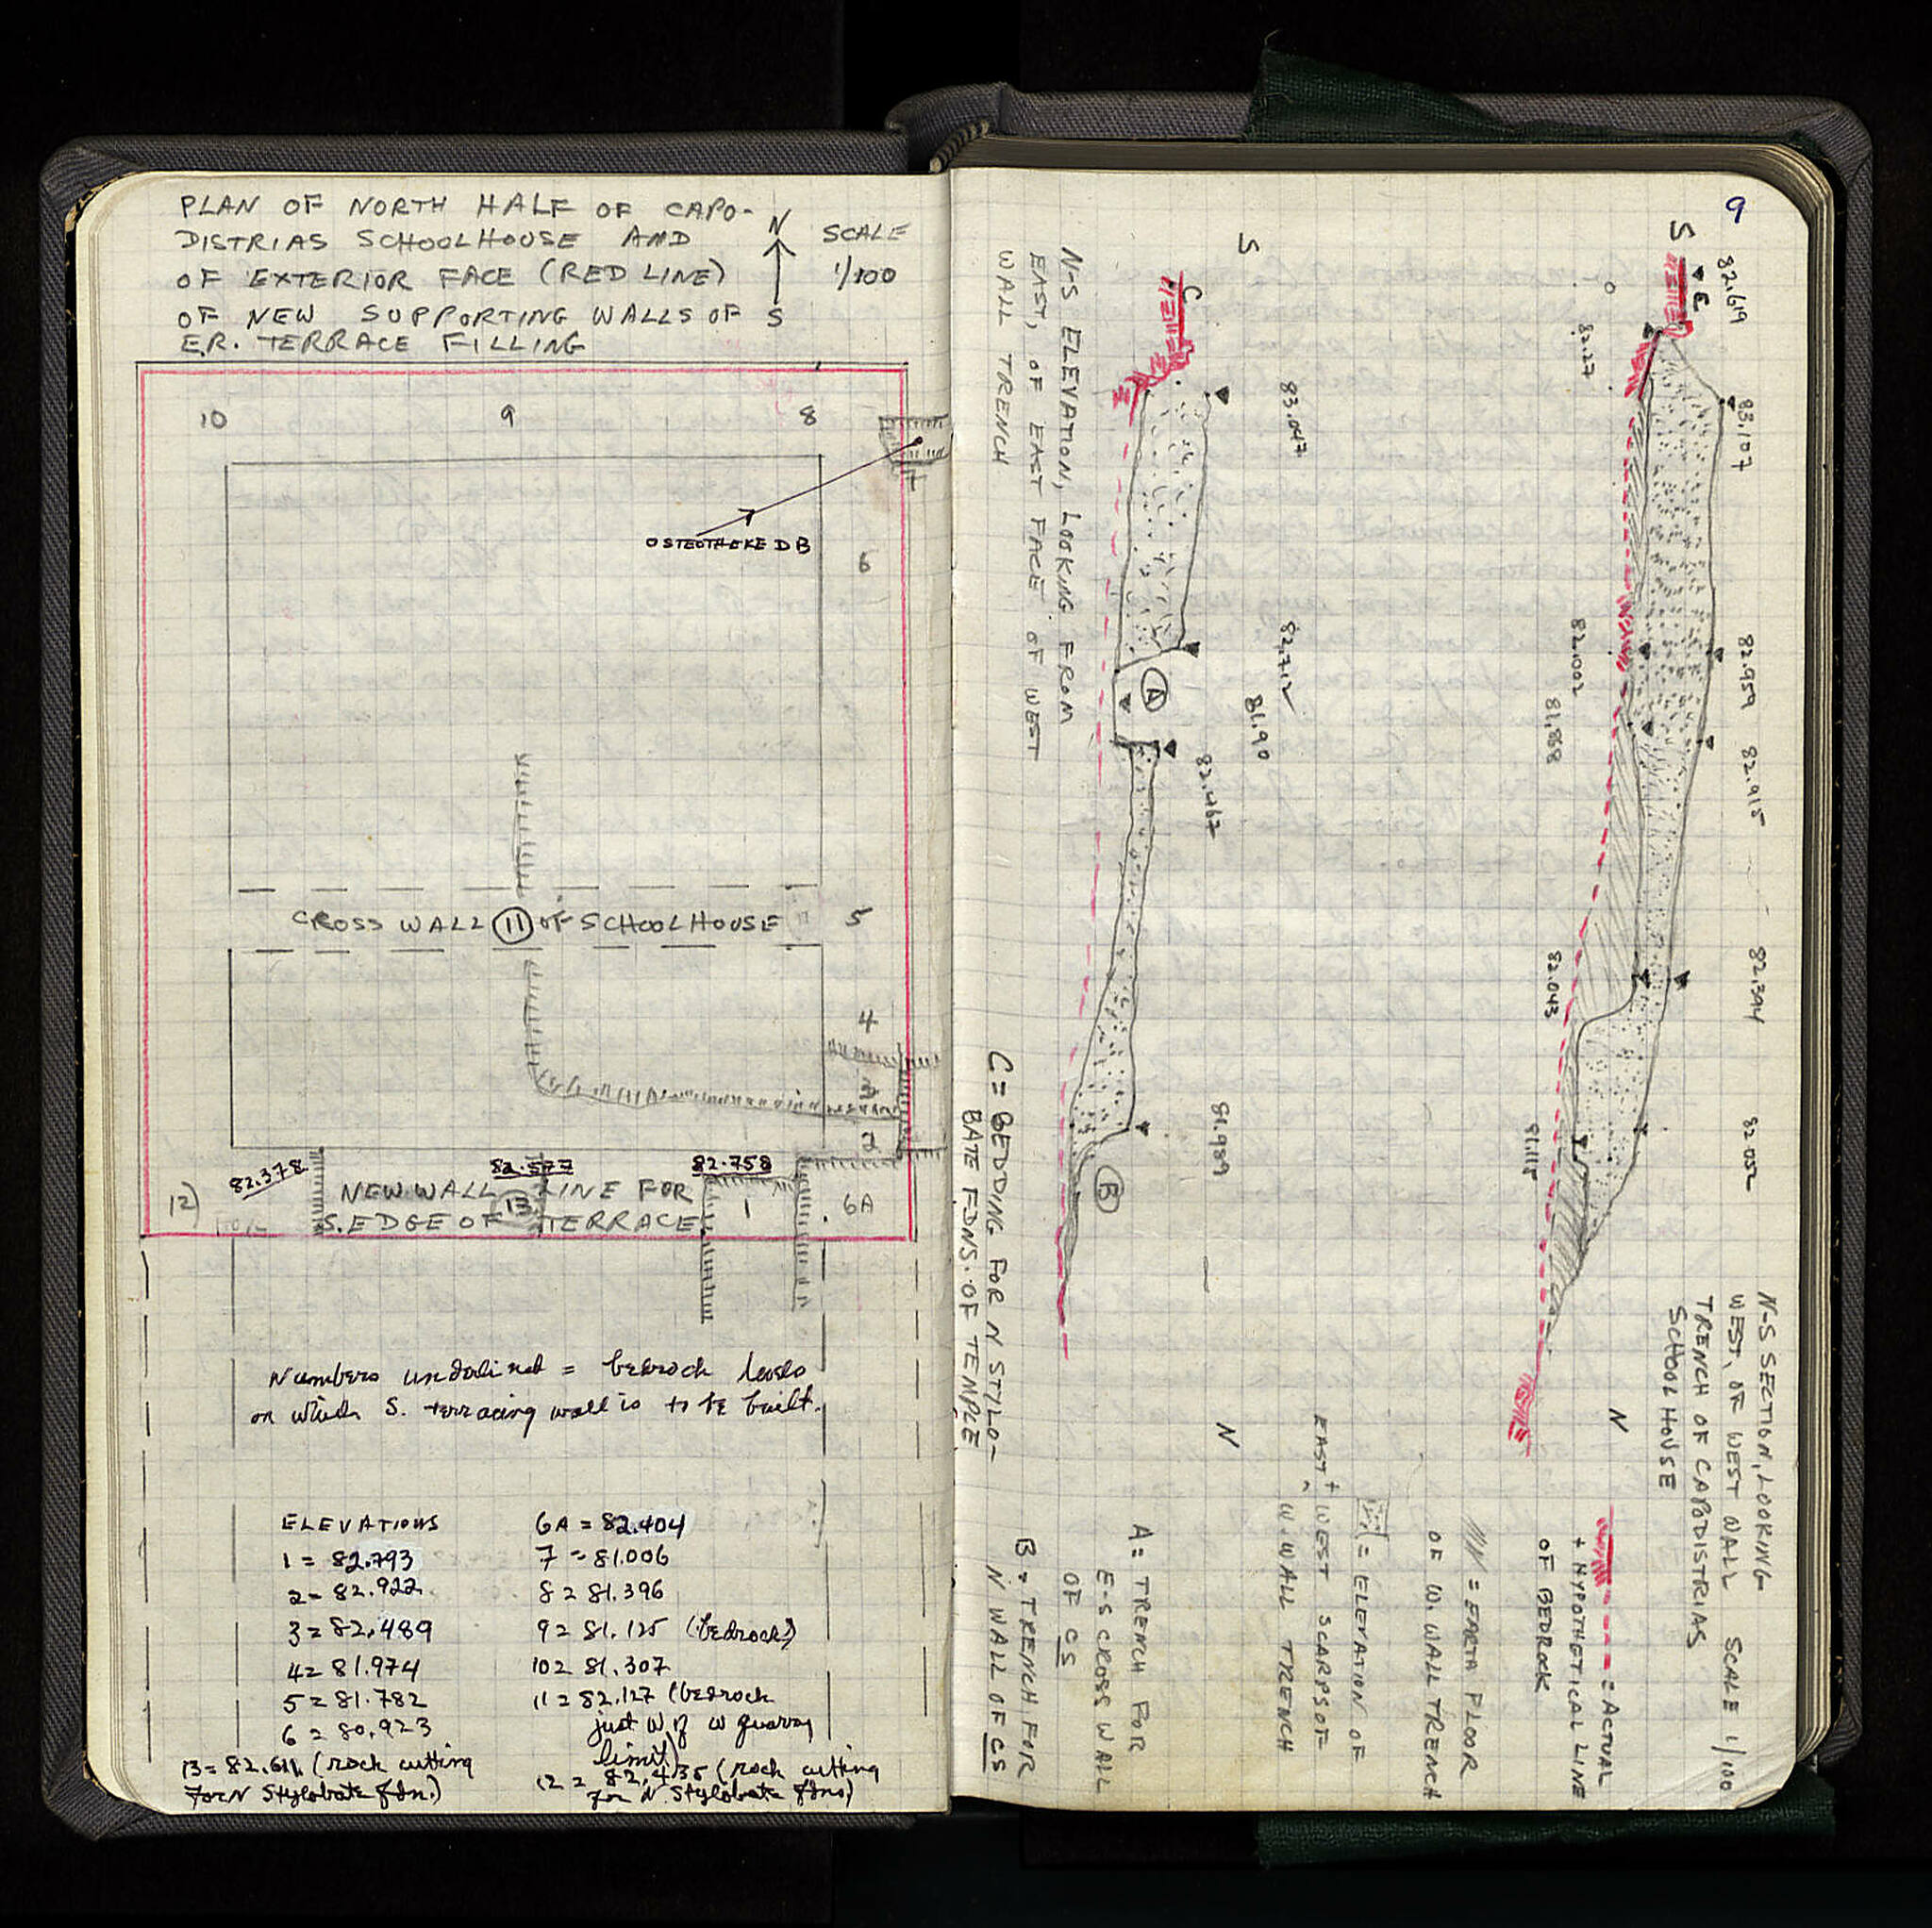 PLAN OF NORTH HALF OF CAPO-
DISTRIAS SCHOOLHOUSE AND
OF EXTERIOR FACE (RED LINE)
OF NEW SUPPORTING WALLS OF
E.R. TERRACE FILLING
N
S
SCALE
1/100
10 9 8
7
OSTEOTHEKE DB
6
CROSS WALL 11 OF SCHOOLHOUSE 5
4
3
2
82.378 82.577 82.758
12) NEW WALL LINE FOR
S. EDGE OF 13 TERRACE 1 6A
Numbers underlined = bedrock levels
on which S. terracing wall is to be built.
ELEVATIONS
1 = 82.793
2 = 82.922
3 = 82.489
4 = 81.974
5 = 81.782
6 = 80.923
13 = 82.611 (rock cutting
for N Stylobate fdn.)
6A = 82.404
7 = 81.006
8 = 81.396
9 = 81.125 (bedrock)
10 = 81.307
11 = 82.127 (bedrock
just W of W quarry
limit)
12 = 82.435 (rock cutting
for N Stylobate fdns)
9
N-S SECTION, LOOKING
WEST, OF WEST WALL SCALE 1/100
TRENCH OF CAPODISTRIAS
SCHOOLHOUSE
S
82.619
83.107
82.959
82.915
82.394
82.052
E
82.27
82.002
81.868
82.043
81.115
N
= ACTUAL
+ HYPOTHETICAL LINE
OF BEDROCK
= EARTH FLOOR
OF W. WALL TRENCH
= ELEVATION OF
EAST + WEST SCARPS OF
W. WALL TRENCH
S
83.047
82.712
81.90
82.467
81.989
N
C
A
B
N-S ELEVATION, LOOKING FROM
EAST, OF EAST FACE OF WEST
WALL TRENCH
A = TRENCH FOR
E-S CROSS WALL
OF CS
B = TRENCH FOR
N WALL OF CS
C = BEDDING FOR N STYLO-
BATE FDNS. OF TEMPLE